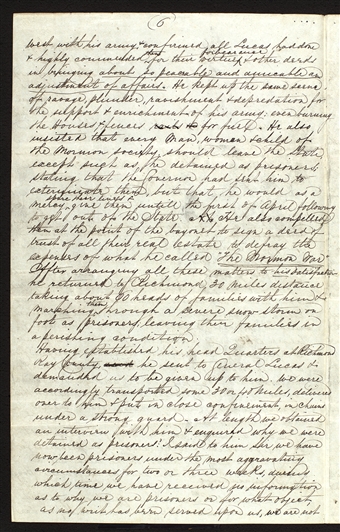 6
west with his army & confirmed all Lucas had done
forbearance
& highly commended them for their virtue & other deeds
in bringing about so peaceable and amicable an
adjustment of affairs. He kept up the same scene
of ravage, plunder, ravishment & depredation for
the support & enrichment of his army, even burning
the Houses & fences for fuel. He also
insisted that every Man, woman & child of
the Mormon society should leave the State,
except such as, he detained as prisoners;
stating that the Governor had sent him to
exterminate them, but that he would as a
spare their lives &
mercy, give them untill the first of April following
to get out of the State. He also compelled
them at the point of the bayonet to sign a deed of
trust of all their real Estate to defray the
expenses of what he called "The Mormon War"
After arranging all these matters to his satisfaction
he returned to Richmond, 30 Miles distance
taking about 60 heads of families with him &
marching them through a severe snow storm on
foot as prisoners, leaving their families in
a perishing condition.
Having established his head Quarters at Richmond
Ray County he sent to General Lucas &
demanded us to be given up to him. we were
accordingly transported some 30 or 40 Miles, delivered
over to him & put in close confinement, in chains
under a strong guard. At length we obtained
an interview with him & enquired why we were
detained as prisoners? I said to him Sir we have
now been prisoners under the most aggravating
circumstances for two or three weeks, during
which time we have received no information
as to why we are prisoners or for what object,
as no writ has been served upon us, we are not